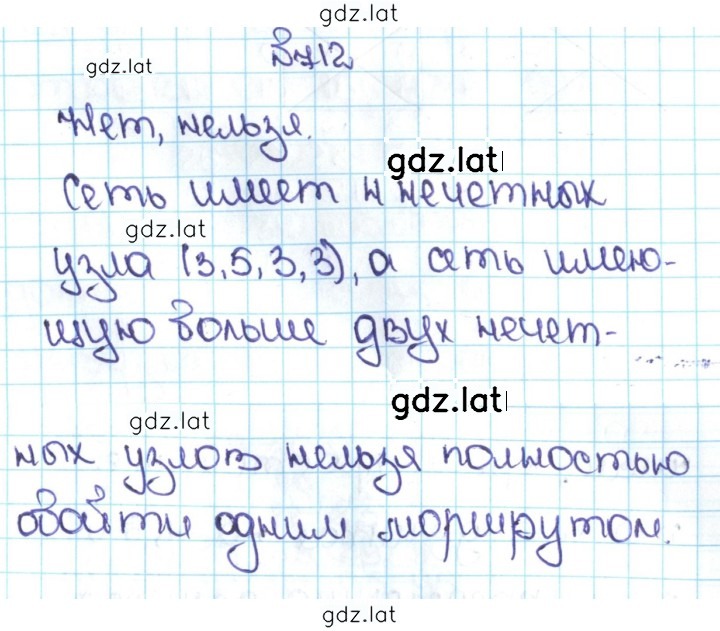 gdz.lat
В712
gdz.lat
Нет, нельзя.
gdz.lat
Сеть имеет 4 нечетных
gdz.lat
узла (3,5,3,3), а сеть имею-
щую больше двух нечет-
gdz.lat
gdz.lat
ных узлов нельзя полностью
обойти одним маршрутом.
gdz.lat